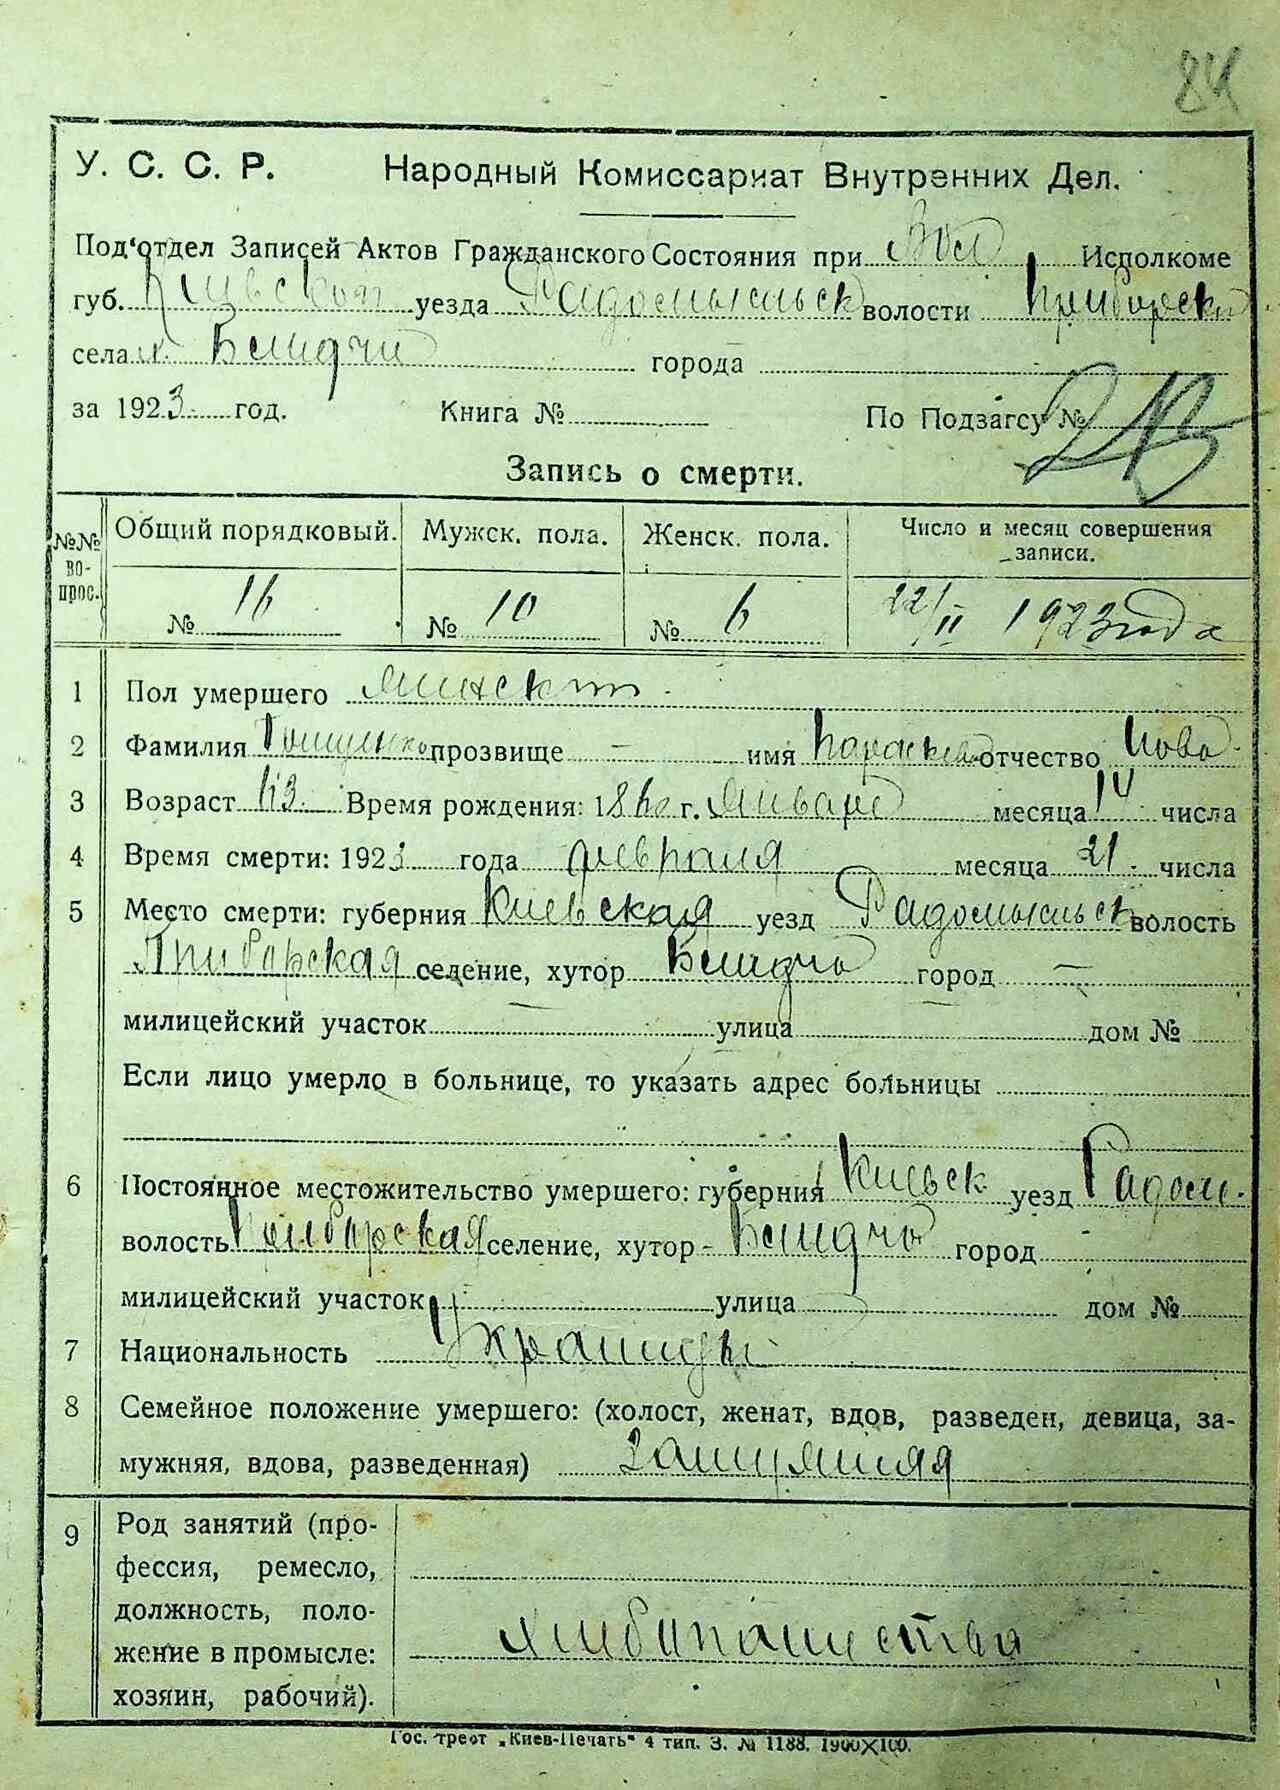 84
У. С. С. Р. Народный Комиссариат Внутренних Дел.
Под'отдел Записей Актов Гражданского Состояния при Вол Исполкоме
губ. Киевской уезда Радомысльск волости Приборской
села
города
за 1923 год. Книга № По Подзагсу №
Запись о смерти.
№№ вопрос. Общий порядковый. Мужск. пола. Женск. пола. Число и месяц совершения записи.
№ 16 № 10 № 6 22/II 1923 года
1 Пол умершего женский
2 Фамилия прозвище — имя Параскева отчество Иова
3 Возраст 63 Время рождения: 1860 г. Января месяца 14 числа
4 Время смерти: 1923 года февраля месяца 21 числа
5 Место смерти: губерния Киевская уезд Радомысльск волость
Приборская селение, хутор город —
милицейский участок улица дом №
Если лицо умерло в больнице, то указать адрес больницы
6 Постоянное местожительство умершего: губерния Киевск уезд Радом.
волость Приборская селение, хутор город
милицейский участок улица дом №
7 Национальность
8 Семейное положение умершего: (холост, женат, вдов, разведен, девица, за-
мужняя, вдова, разведенная) замужняя
9 Род занятий (про-
фессия, ремесло,
должность, поло-
жение в промысле:
хозяин, рабочий).
хлибопашество
Гос. трест „Киев-Печать" 4 тип. З. № 1188. 1900×100.